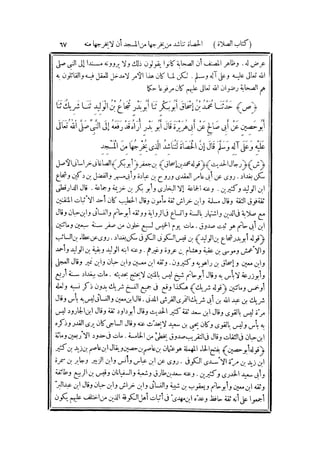 (كتاب الصلاة) الحصاة تناشد من يخرجها من المسجد أن لا يخرجها منه ٦٧
عرض له . وظاهر المصنف أن الصحابة كانوا يقولون ذلك ولا يروونه مسندا إلى النبي صلى
الله تعالى عليه وعلى آله وسلم . لكن لما كان هذا الأمر لا مدخل للعقل فيه والقائلون به
هم الصحابة رضوان الله تعالى عليهم كان مرفوعا حكما
(ص) حدثنا محمد بن إسحاق أبو بكر ثنا أبو بدر شجاع بن الوليد ثنا شريك ثنا
أبو حصين عن أبي صالح عن أبي هريرة قال أبو بدر أراه قد رفعه إلى النبي صلى الله تعالى
عليه وآله وسلم قال إن الحصاة لتناشد الذي يخرجها من المسجد
(ش) (رجال الحديث) (قوله محمد بن إسحاق) بن جعفر (أبو بكر) الصاغاني خراساني الأصل
سكن بغداد . روى عن أبي عامر العقدي وروح بن عبادة وأبي مسهر والفضل بن دكين وشجاع
ابن الوليد وكثيرين . وعنه الجماعة إلا البخاري وأبو بكر بن خزيمة وجماعة . قال الدارقطني
ثقة فوق الثقة وقال مسلمة وابن خراش ثقة مأمون وقال الخطيب كان أحد الأثبات المتقنين
مع صلابة في الدين واشتهار بالسنة واتساع في الرواية ووثقه أبو حاتم والنسائي وابن حبان وقال
ابن أبي حاتم هو ثبت صدوق . مات يوم الخميس لسبع خلون من صفر سنة سبعين ومائتين
(قوله أبو بدر شجاع بن الوليد) بن قيس السكوني الكوفي سكن بغداد . روى عن عطاء بن السائب
والأعمش وموسى بن عقبة وهشام بن عروة وغيرهم . وعنه ابنه الوليد وبقية بن الوليد وأحمد
وابن معين وإسحاق بن راهويه وكثيرون . وثقه ابن معين وابن حبان وابن نمير وقال العجلي
وأبو زرعة لا بأس به وقال أبو حاتم شيخ ليس بالمتين لا يحتج بحديثه . مات ببغداد سنة أربع
ومائتين (قوله شريك) هكذا وقع في جميع النسخ شريك بدون ذكر نسبه ولعله
شريك بن عبد الله بن أبي شريك القرشي المدني . قال ابن معين والنسائي ليس به بأس وقال
مرة ليس بالقوي وقال ابن سعد ثقة كثير الحديث وقال أبو داود ثقة وقال ابن الجارود ليس
به بأس وليس بالقوي وكان يحيى بن سعيد لا يحدث عنه وقال الساجي كان يرى القدر وذكره
ابن حبان في الثقات وقال في التقريب صدوق يخطئ من الخامسة . مات في حدود الأربعين ومائة
(قوله أبو حصين) بفتح الحاء المهملة هو عثمان بن عاصم بن حصين ويقال ابن عاصم بن زيد بن كثير
ابن زيد بن مرة الأسدي الكوفي . روى عن ابن عباس وأنس وابن الزبير وجابر بن سمرة
وأبي سعيد الخدري وكثيرين . وعنه سعد بن طارق وشعبة والسفيانان وقيس بن الربيع وطائفة
وثقه ابن معين وأبو حاتم ويعقوب بن شيبة والنسائي وابن خراش وابن حبان وقال ابن عبد البر
أجمعوا على أنه ثقة حافظ وعده ابن مهدي في أثبات أهل الكوفة الذين من اختلف عليهم يكون